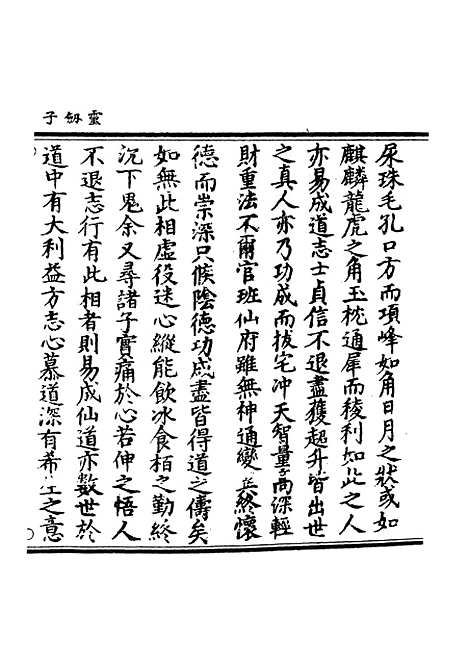 靈劔子
尿珠毛孔口方而項峰如角日月之狀或如
麒麟龍虎之角玉枕通犀而稜利如此之人
亦易成道志士貞信不退盡獲超升皆出世
之真人亦乃功成而拔宅冲天智量高深輕
財重法不爾官班仙府雖無神通變終懷
德而崇深只候陰德功成盡皆得道之儔矣
如無此相虛役迷心縱能飲冰食栢之勤終
沉下鬼余又尋諸子實痛於心若伸之悟人
不退志行有此相者則易成仙道亦數世於
道中有大利益方志心慕道深有希之意